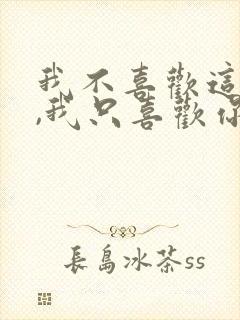 我不喜歡這
,我只喜歡你
長島冰茶ss